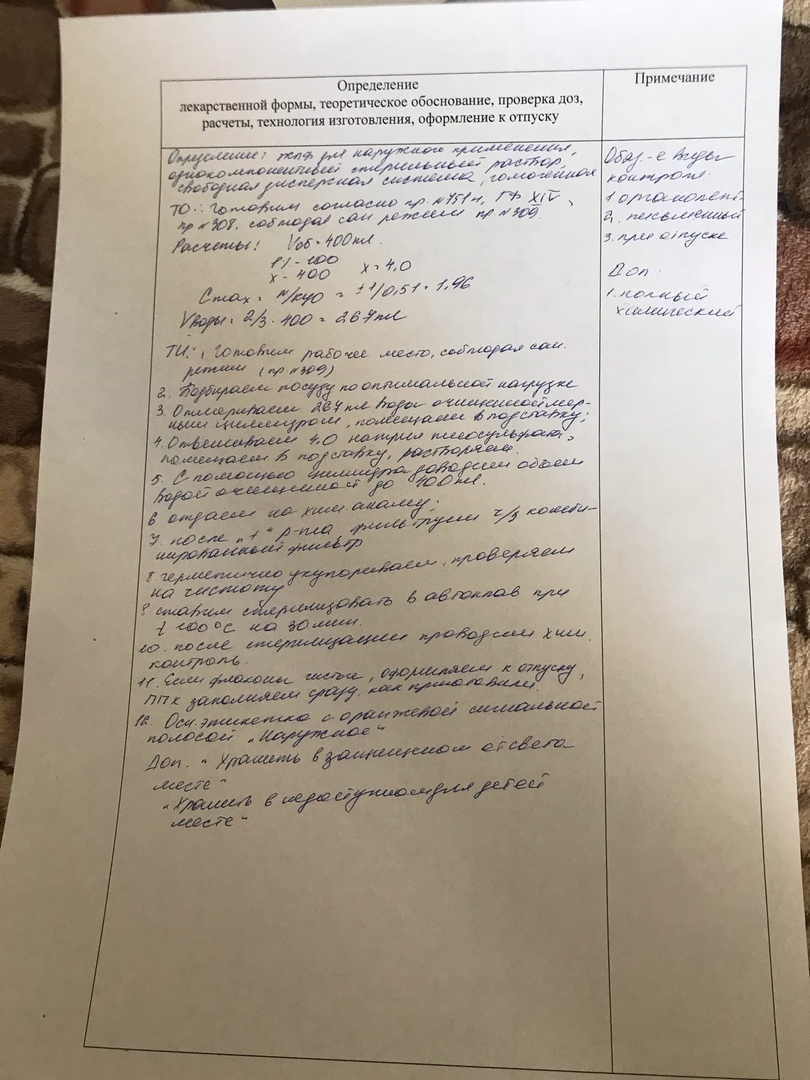 Определение
лекарственной формы, теоретическое обоснование, проверка доз,
расчеты, технология изготовления, оформление к отпуску
Примечание
Определение: жлф для наружного применения,
однокомпонентный стерильный раствор,
свободная дисперсная система, гомогенная
ТО: Готовим согласно пр. №751н, ГФ XIV,
пр №308, соблюдая сан режим пр №309.
Расчеты: Vоб = 400 ml.
1,0 - 100
x - 400 x = 4,0
Cmax = N/куо = ±1/0,51 = 1,96
Vводы = 2/3 · 400 = 267 ml
ТИ: 1. Готовим рабочее место, соблюдая сан.
режим (пр №309)
2. Подбираем посуду по оптимальной нагрузке
3. Отмериваем 267 ml воды очищенной мер-
ным цилиндром, помещаем в подставку;
4. Отвешиваем 4,0 натрия тиосульфата,
помещаем в подставку, растворяем.
5. С помощью цилиндра доводим объем
водой очищенной до 400 ml.
6 отдаем на хим анализ;
7. после „+" р-та фильтруем ч/з комби-
нированный фильтр
8 герметично укупориваем, проверяем
на чистоту
9 ставим стерилизовать в автоклав при
t 100°C на 30 мин.
10. после стерилизации проводим хим.
контроль
11. Если флаконы чистые, оформляем к отпуску,
ППК заполняем сразу, как приготовили.
12. Осн. этикетка с оранжевой сигнальной
полосой „Наружное"
Доп. „Хранить в защищенном от света
месте"
„Хранить в недоступном для детей
месте"
Обяз.-е виды
контроля:
1 органолепт.
2. письменный
3. при отпуске
Доп.
1. полный
химический